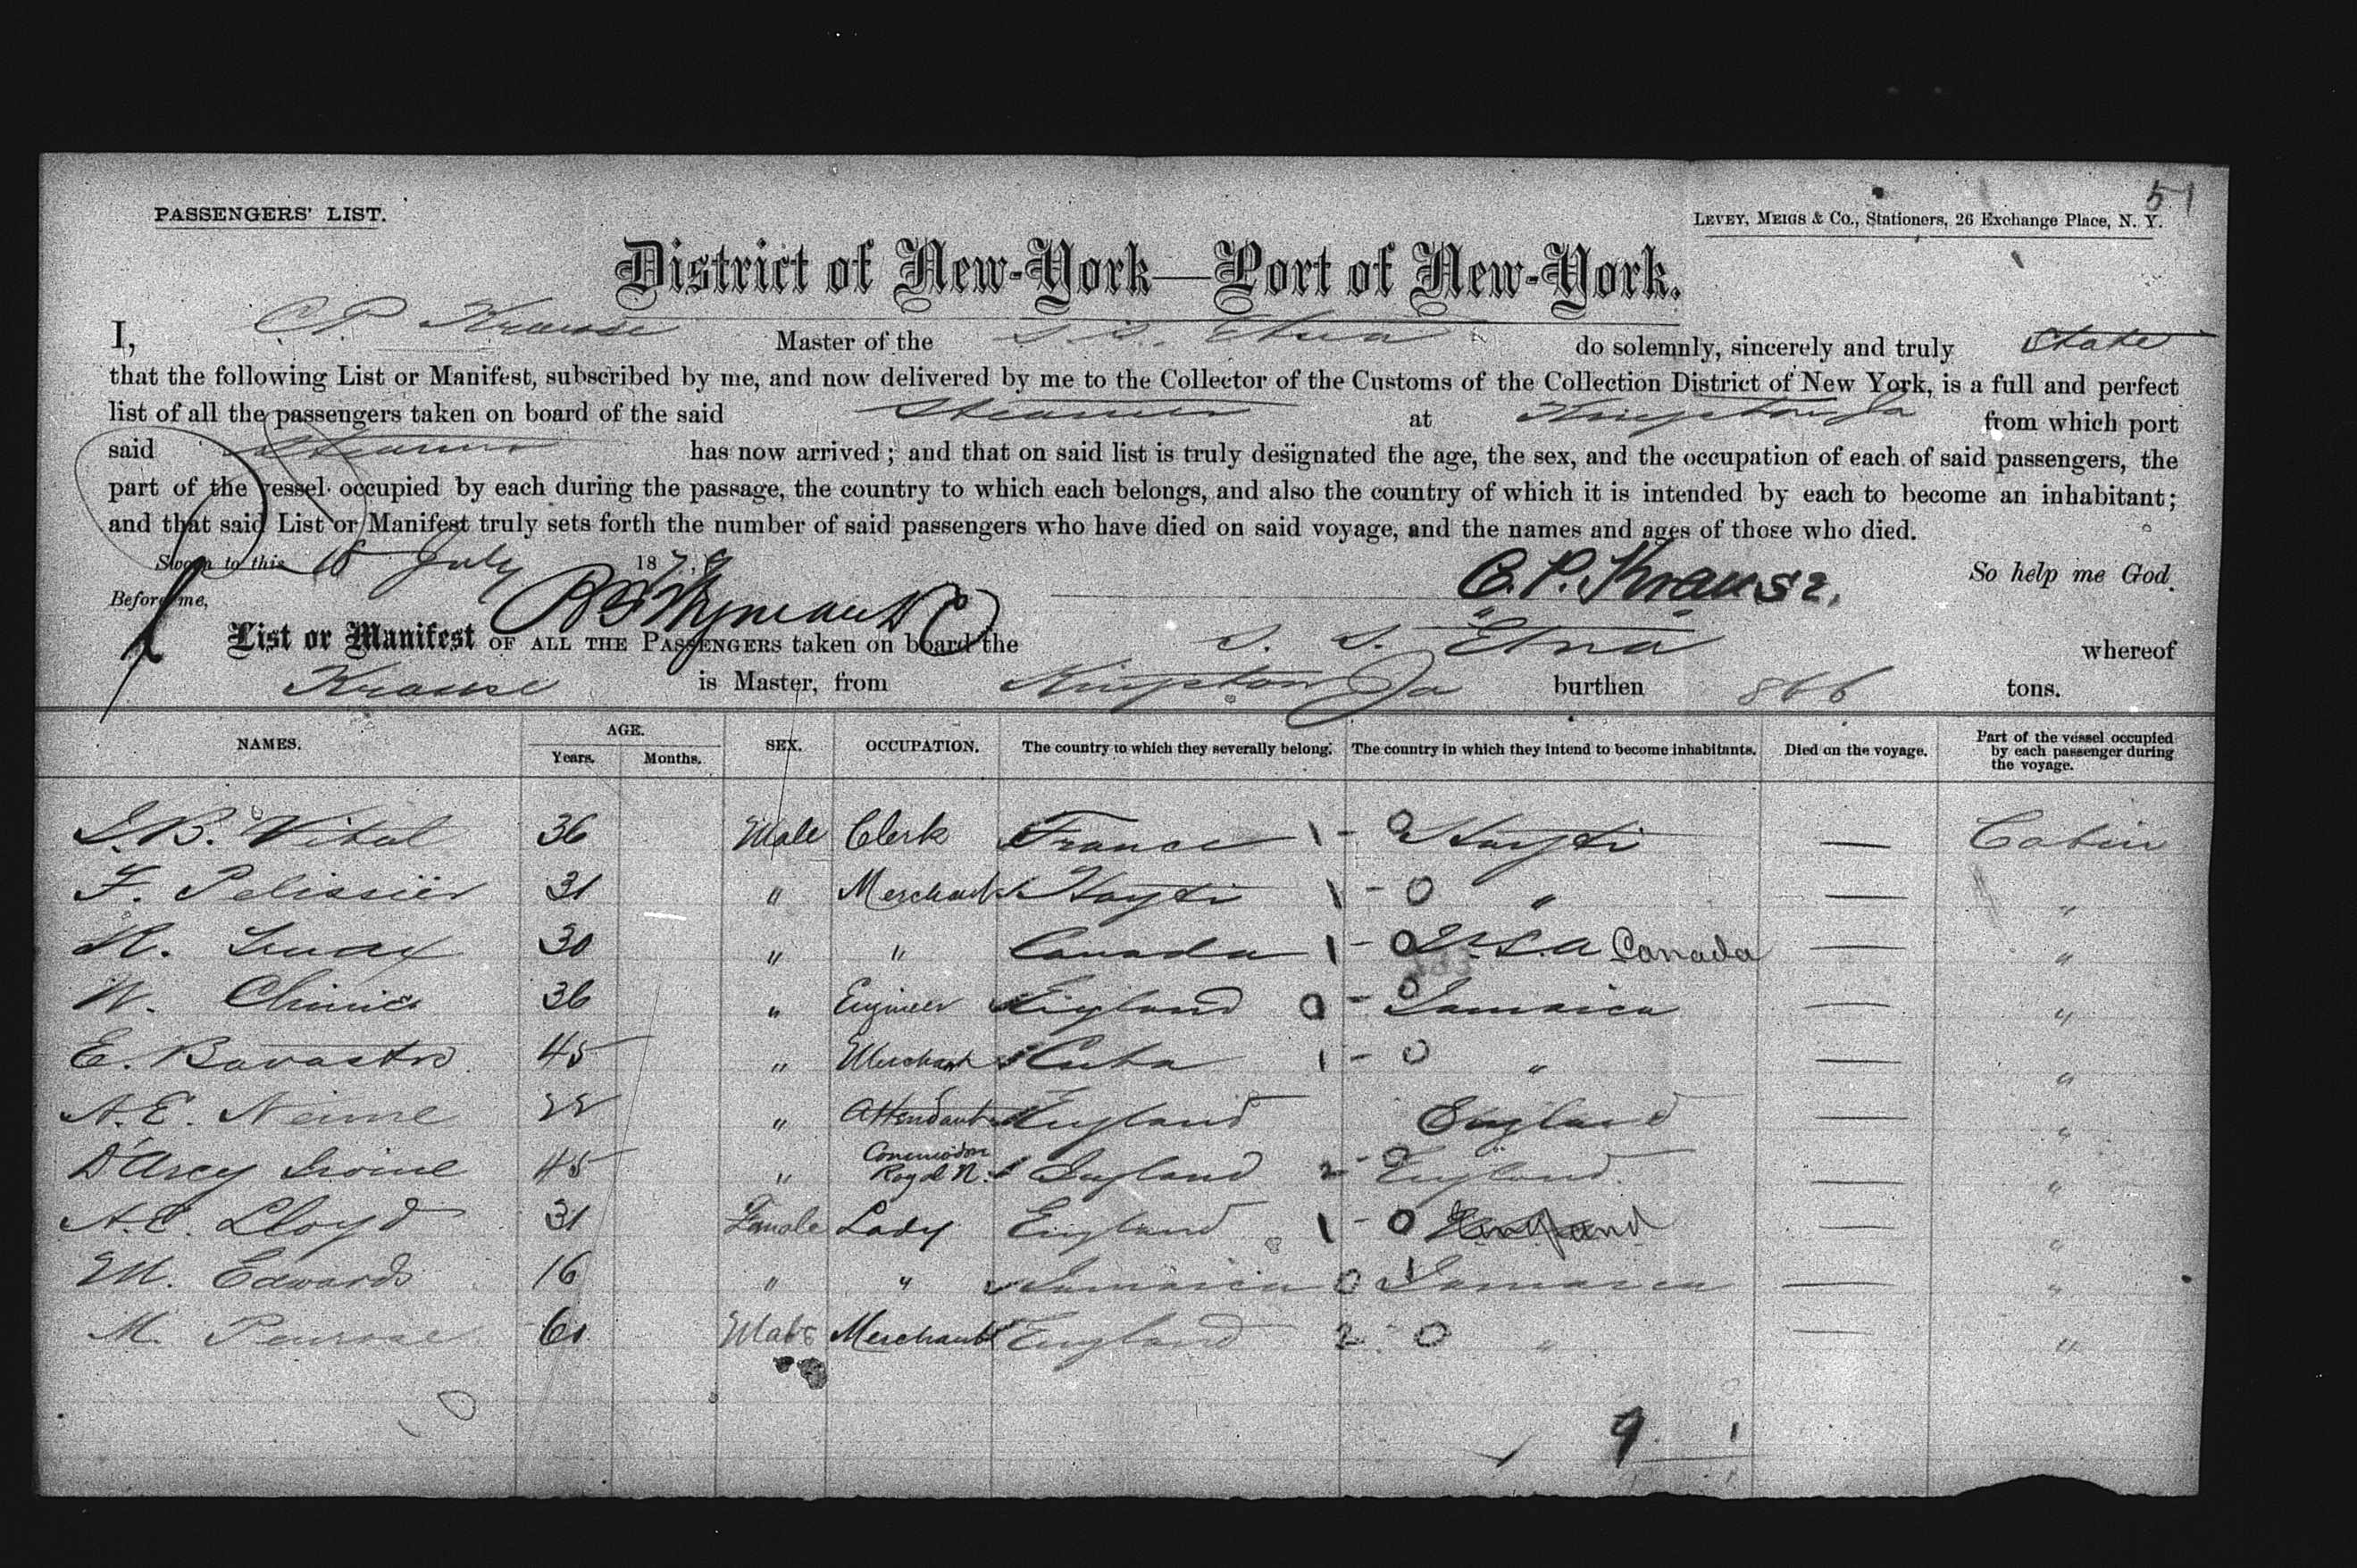 51
PASSENGERS' LIST.
LEVEY, MEIGS & CO., Stationers, 26 Exchange Place, N. Y.
District of New-York—Port of New-York.
I, C. P. Krause Master of the S. S. Etna do solemnly, sincerely and truly State
that the following List or Manifest, subscribed by me, and now delivered by me to the Collector of the Customs of the Collection District of New York, is a full and perfect
list of all the passengers taken on board of the said Steamer at Kingston Ja from which port
said Steamer has now arrived; and that on said list is truly designated the age, the sex, and the occupation of each of said passengers, the
part of the vessel occupied by each during the passage, the country to which each belongs, and also the country of which it is intended by each to become an inhabitant;
and that said List or Manifest truly sets forth the number of said passengers who have died on said voyage, and the names and ages of those who died.
Sworn to this July 1879 C. P. Krause. So help me God.
Before me,
List or Manifest OF ALL THE PASSENGERS taken on board the S. S. Etna whereof
Krause is Master, from Kingston Ja burthen 866 tons.
NAMES. AGE. Years. Months. SEX. OCCUPATION. The country to which they severally belong. The country in which they intend to become inhabitants. Died on the voyage. Part of the vessel occupied by each passenger during the voyage.
J. B. Vital 36 Male Clerk France 1 - 0 Hayti — Cabin
F. Pelissier 31 " Merchant Hayti 1 - 0 " — "
30 " " Canada 1 - 0 U.S.A Canada — "
W. 36 " Engineer England 0 - 0 Jamaica — "
E. Bavastro 45 " Merchant Cuba 1 - 0 " — "
A. E. 22 " Attendant England England — "
D'Arcy Irvine 45 " Royal N. England 2 - 0 England — "
A. E. Lloyd 31 Female Lady England 1 - 0 England — "
M. Edwards 16 " " Jamaica 0 1 Jamaica — "
M. Penrose 60 Male Merchant England 2 - 0 " — "
9 1